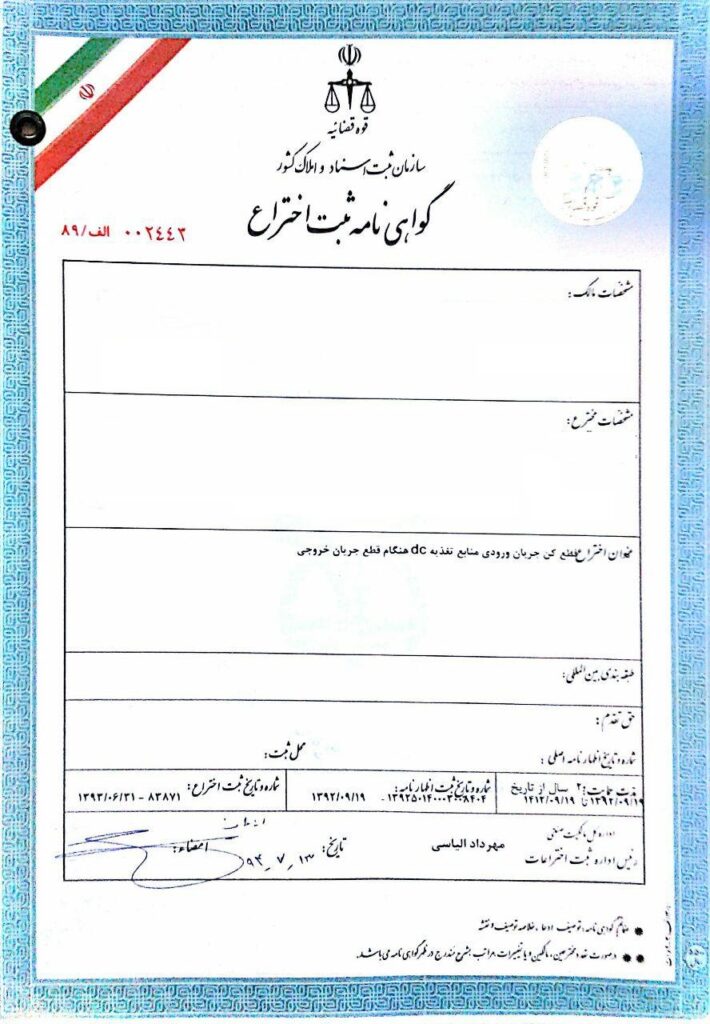 قوه قضائیه
سازمان ثبت اسناد و املاک کشور
گواهی نامه ثبت اختراع
۰۰۲۴۴۳ الف/۸۹
مشخصات مالک:
مشخصات مخترع:
عنوان اختراع: قطع کن جریان ورودی منابع تغذیه dc هنگام قطع جریان خروجی
طبقه بندی بین المللی:
حق تقدم:
شماره و تاریخ اظهارنامه اصلی: محل ثبت:
مدت حمایت: ۲۰ سال از تاریخ
۱۳۹۲/۰۹/۱۹ تا ۱۴۱۲/۰۹/۱۹
شماره و تاریخ ثبت اظهارنامه:
۱۳۹۲/۰۹/۱۹ - ۱۳۹۲۵۰۱۴۰۰۰۳۰۰۸۴۰۴
شماره و تاریخ ثبت اختراع: ۸۳۸۷۱ - ۱۳۹۳/۰۶/۳۱
اداره کل مالکیت صنعتی
رئیس اداره ثبت اختراعات مهرداد الیاسی تاریخ: ۹۴_۷_۱۳ امضاء:
ضمائم گواهی نامه: توصیف، ادعا، خلاصه توصیف و نقشه
در صورت تعدد مخترعین، مالکین و یا تغییرات، مراتب بشرح مندرج در ظهر گواهی نامه می باشد.